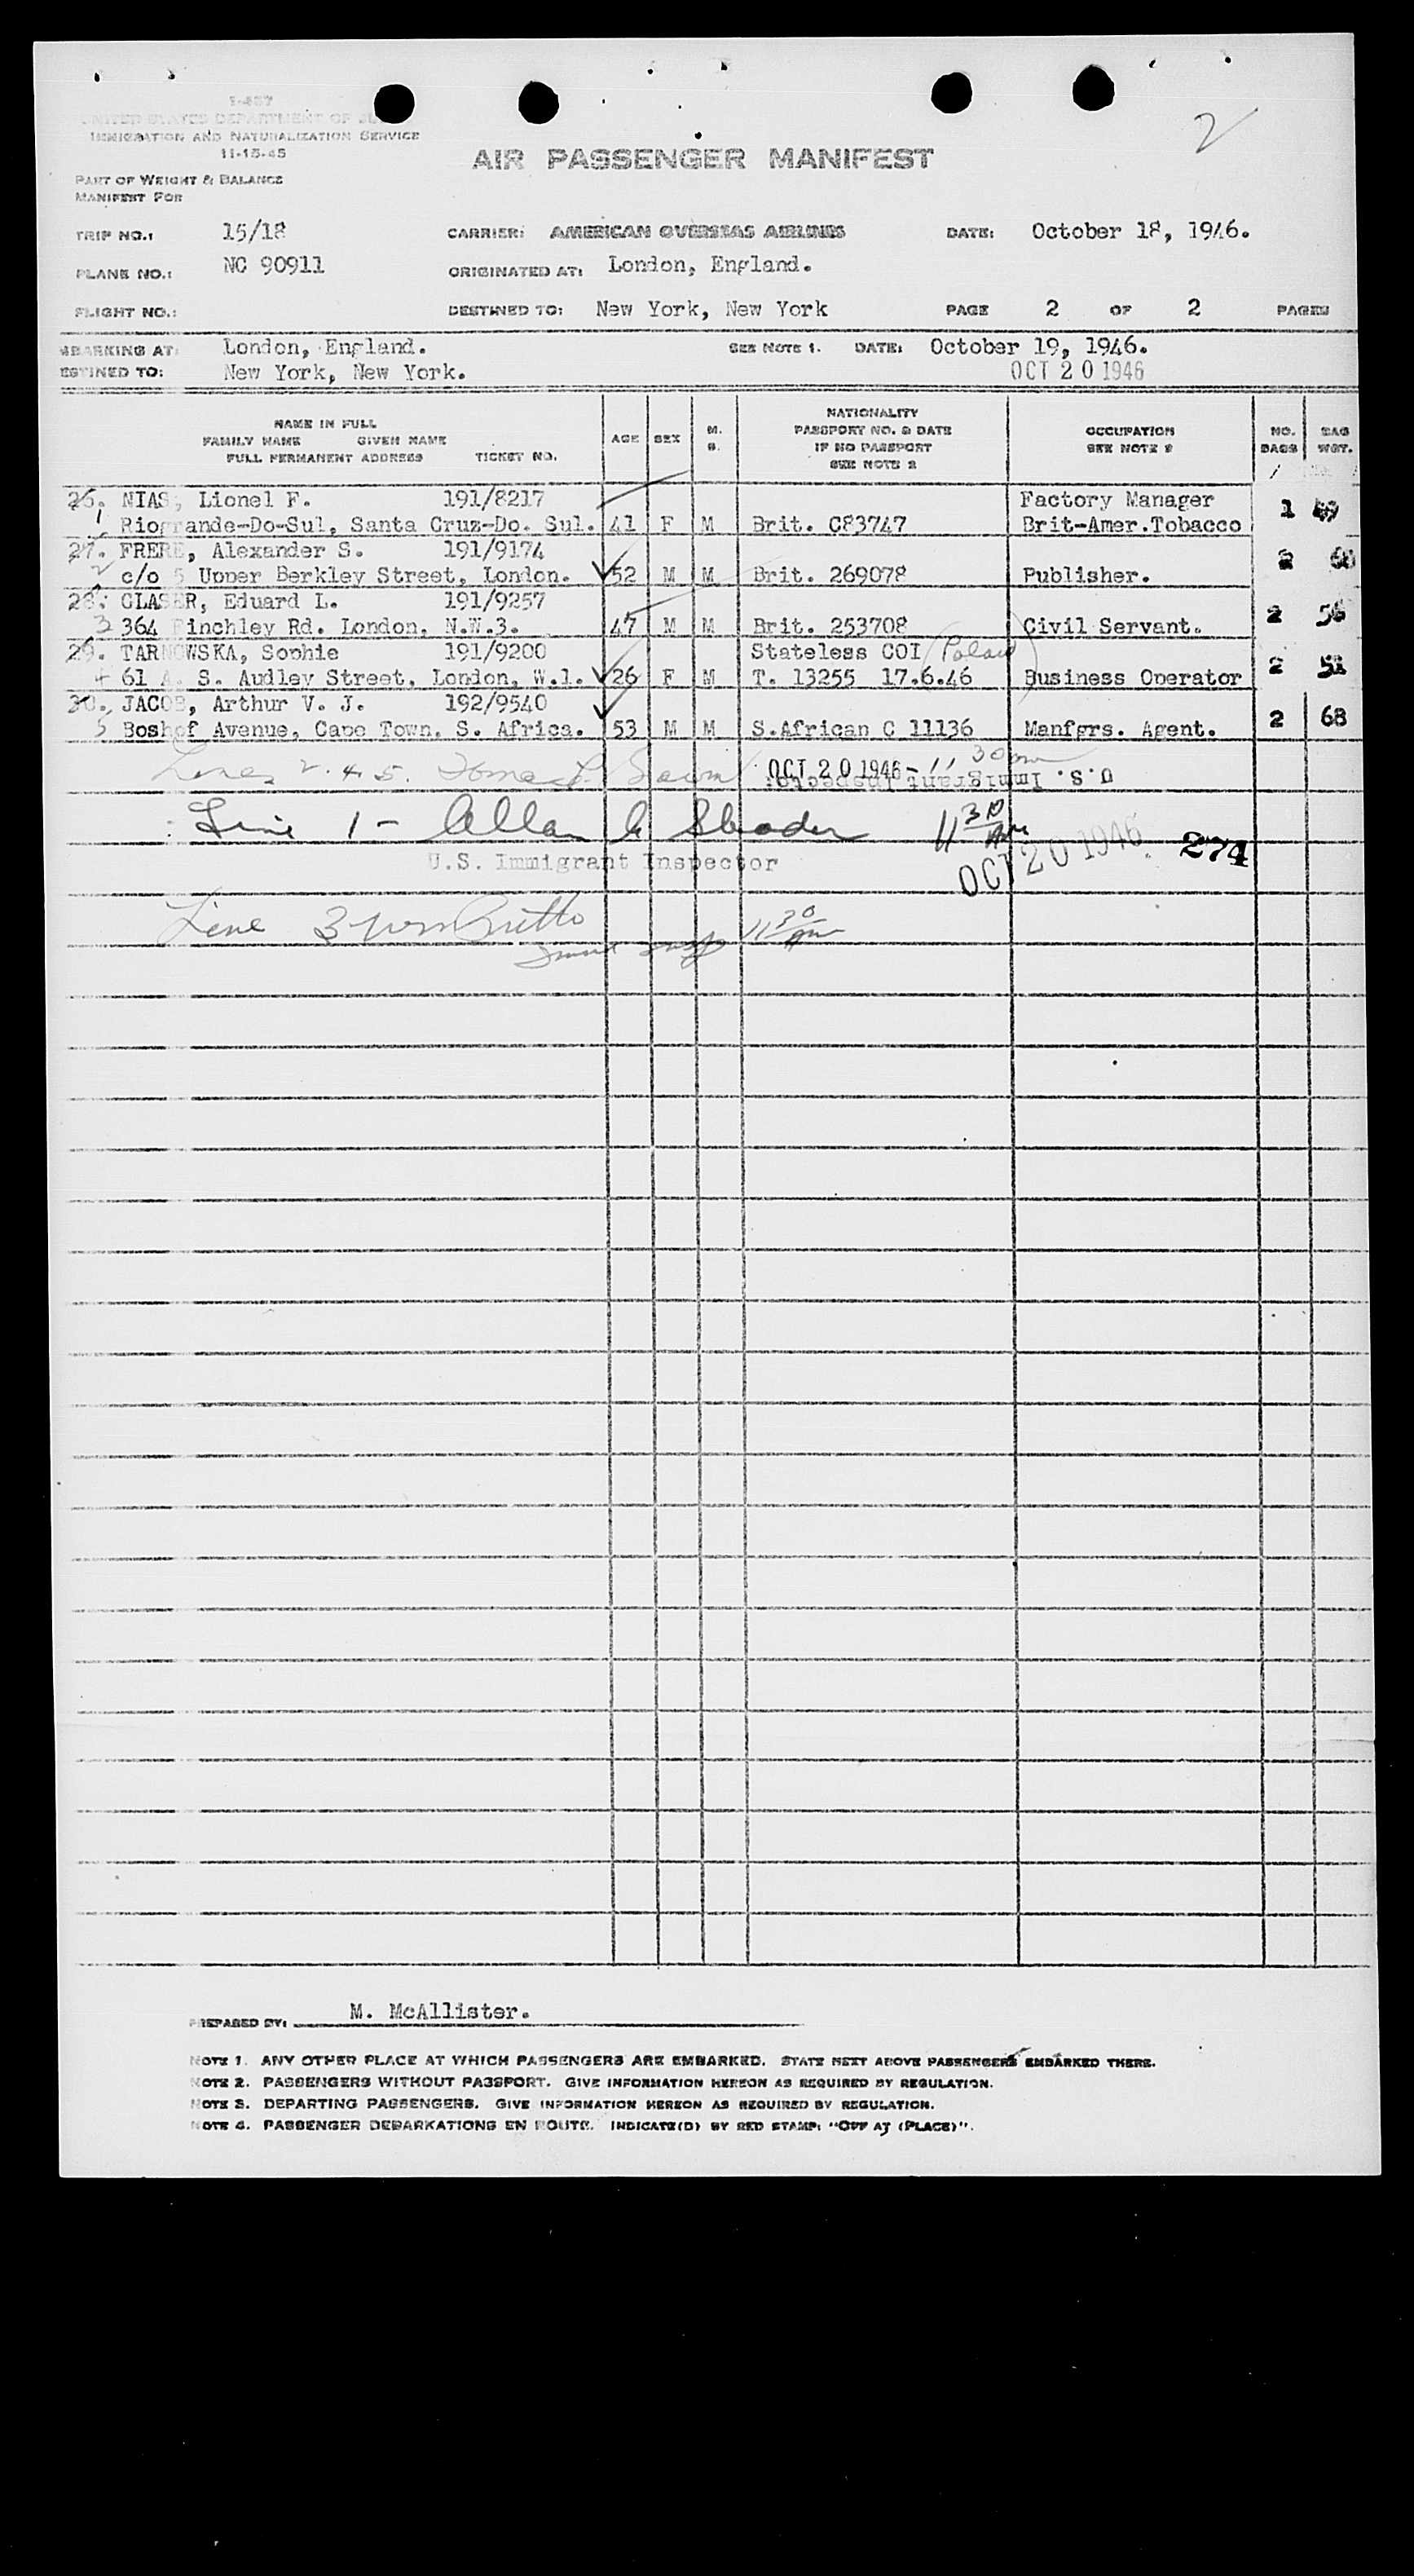 I-437
UNITED STATES DEPARTMENT OF JU
IMMIGRATION AND NATURALIZATION SERVICE
11-15-45
2
AIR PASSENGER MANIFEST
PART OF WEIGHT & BALANCE
MANIFEST FOR
TRIP NO.: 15/18 CARRIER: AMERICAN OVERSEAS AIRLINES DATE: October 18, 1946.
PLANE NO.: NC 90911 ORIGINATED AT: London, England.
FLIGHT NO.: DESTINED TO: New York, New York PAGE 2 OF 2 PAGES
MBARKING AT: London, England. SEE NOTE 1. DATE: October 19, 1946.
ESTINED TO: New York, New York. OCT 20 1946
NAME IN FULL
FAMILY NAME GIVEN NAME
FULL PERMANENT ADDRESS TICKET NO. AGE SEX M. S. NATIONALITY PASSPORT NO. & DATE IF NO PASSPORT SEE NOTE 2 OCCUPATION SEE NOTE 2 NO. BAGS BAG WGT.
26. NIAS, Lionel F. 191/8217 Factory Manager
1 Riogrande-Do-Sul, Santa Cruz-Do. Sul. 41 F M Brit. C83747 Brit-Amer.Tobacco 1 49
27. FRERE, Alexander S. 191/9174
2 c/o 5 Upper Berkley Street, London. 52 M M Brit. 269078 Publisher. 2 60
28. GLASER, Eduard L. 191/9257
3 364 Finchley Rd. London, N.W.3. 47 M M Brit. 253708 Civil Servant. 2 56
29. TARNOWSKA, Sophie 191/9200 Stateless COI (Poland)
4 61 A. S. Audley Street, London, W.1. 26 F M T. 13255 17.6.46 Business Operator 2 51
30. JACOB, Arthur V. J. 192/9540
5 Boshof Avenue, Cape Town, S. Africa. 53 M M S.African C 11136 Manfgrs. Agent. 2 68
Lines 2.4.5. OCT 20 1946 - 11 30am
U.S. Immigrant Inspector
Line 1 - Allan 11 30 Am
U.S. Immigrant Inspector OCT 20 1946 274
Line 3 Wm Britto
Immt Insp 11 30 Am
PREPARED BY: M. McAllister.
NOTE 1. ANY OTHER PLACE AT WHICH PASSENGERS ARE EMBARKED. STATE NEXT ABOVE PASSENGERS EMBARKED THERE.
NOTE 2. PASSENGERS WITHOUT PASSPORT. GIVE INFORMATION HEREON AS REQUIRED BY REGULATION.
NOTE 3. DEPARTING PASSENGERS. GIVE INFORMATION HEREON AS REQUIRED BY REGULATION.
NOTE 4. PASSENGER DEBARKATIONS EN ROUTE. INDICATE(D) BY RED STAMP: "OFF AT (PLACE)".